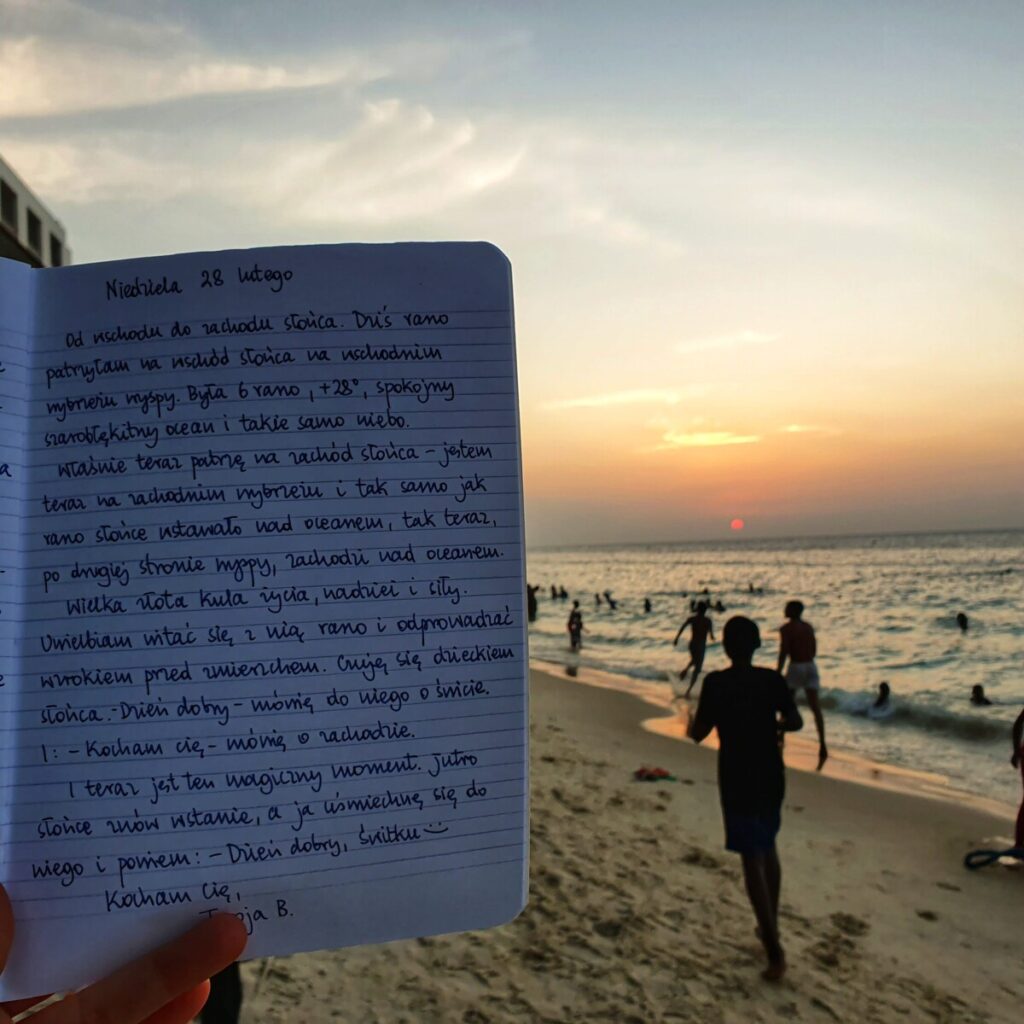 Niedziela 28 lutego
Od wschodu do zachodu słońca. Dziś rano
patrzyłam na wschód słońca na wschodnim
wybrzeżu wyspy. Była 6 rano, +28°, spokojny
szarobłękitny ocean i takie samo niebo.
Właśnie teraz patrzę na zachód słońca – jestem
teraz na zachodnim wybrzeżu i tak samo jak
rano słońce wstawało nad oceanem, tak teraz,
po drugiej stronie wyspy, zachodzi nad oceanem.
Wielka złota kula życia, nadziei i siły.
Uwielbiam witać się z nią rano i odprowadzać
wzrokiem przed zmierzchem. Czuję się dzieckiem
słońca. - Dzień dobry - mówię do niego o świcie.
I: - Kocham cię - mówię o zachodzie.
I teraz jest ten magiczny moment. Jutro
słońce znów wstanie, a ja uśmiechnę się do
niego i powiem: - Dzień dobry, świtku
Kocham Cię,
B.
a